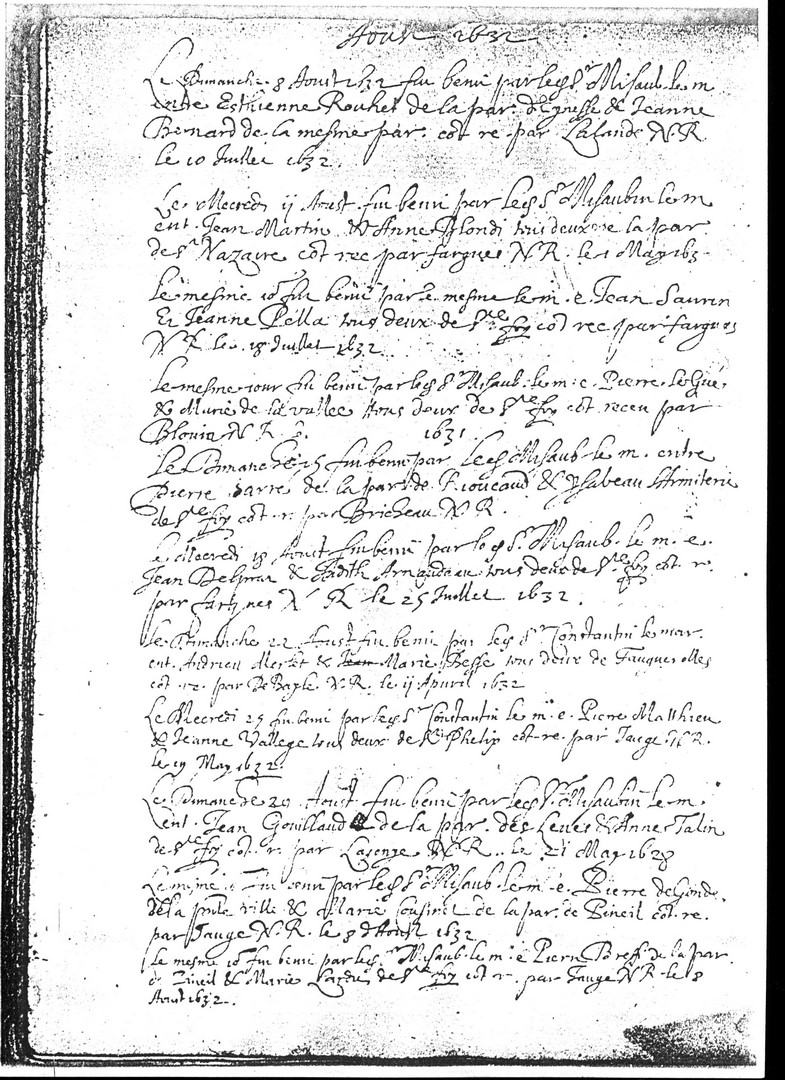 Aoust 1632
Le Dimanche 8 Aoust 1632 fut beni par led Sr Misaub. le m
entre Esthienne Rouhet de la par. d'Eynesse & Jeanne
Bernard de la mesme par. cot re par Lalande N.R.
le 10 Juillet 1632.
Le Mecredi 11 Aoust fut beni par led Sr Misaubin le m
ent. Jean Martin & Anne Blondi tous deux de la par.
de St Nazaire cot rec par fargues N.R. le 1 May 163
Le mesme io fut beni par le mesme le m. e. Jean Saurin
Et Jeanne Pella tous deux de Ste foy cot rec par fargues
N R le 18 Juillet 1632.
Le mesme iour fut beni par led Sr Misaub. le m. e. Pierre. le Gué
& Marie de la vallee tous deux de Ste foy cot. receu par
Blouin N R 1631
Le Dimanche 15 fut beni par led Misaub. le m. entre
Pierre barre de la par. de Rioucaud & Ysabeau
de Ste foy cot. r. par Bricheau N.R.
Le Mecredi 18 Aoust fut beni par led Sr. Misaub. le m. e.
Jean & Judith Arnaudeau tous deux de Ste foy cot. r.
par N R le 25 Juillet 1632.
Le Dimanche 22 Aoust fut beni par led Sr Constantin le mar.
ent. Andrieu Merlet & Marie Besse tous deux de Fauguerolles
cot re. par De Bayle N.R. le 11 Apvril 1632
Le Mecredi 25 fut beni par led Sr Constantin le m. e. Pierre Matthieu
& Jeanne Vallege tous deux de St Phelip cot. re. par Jauge N.R.
le 19 May 1632.
Le Dimanche 29 Aoust fut beni par led Sr. Misaubin le m.
ent. Jean Gouillaud de la par. des Leves & Anne Talin
de Ste foy cot. r. par N.R. le 21 May 1628
Le mesme io fut beni par led Sr Misaub. le m. e. Pierre de
de la ville & Marie Cousinet de la par. de Pineil cot. re.
par Jauge N.R. le 8 d'Aoust 1632
Le mesme io fut beni par led. Sr Misaub. le m. e Pierre de la par.
de Pineil & Marie de Ste foy cot r. par Jauge N R. le 8
Aoust 1632.